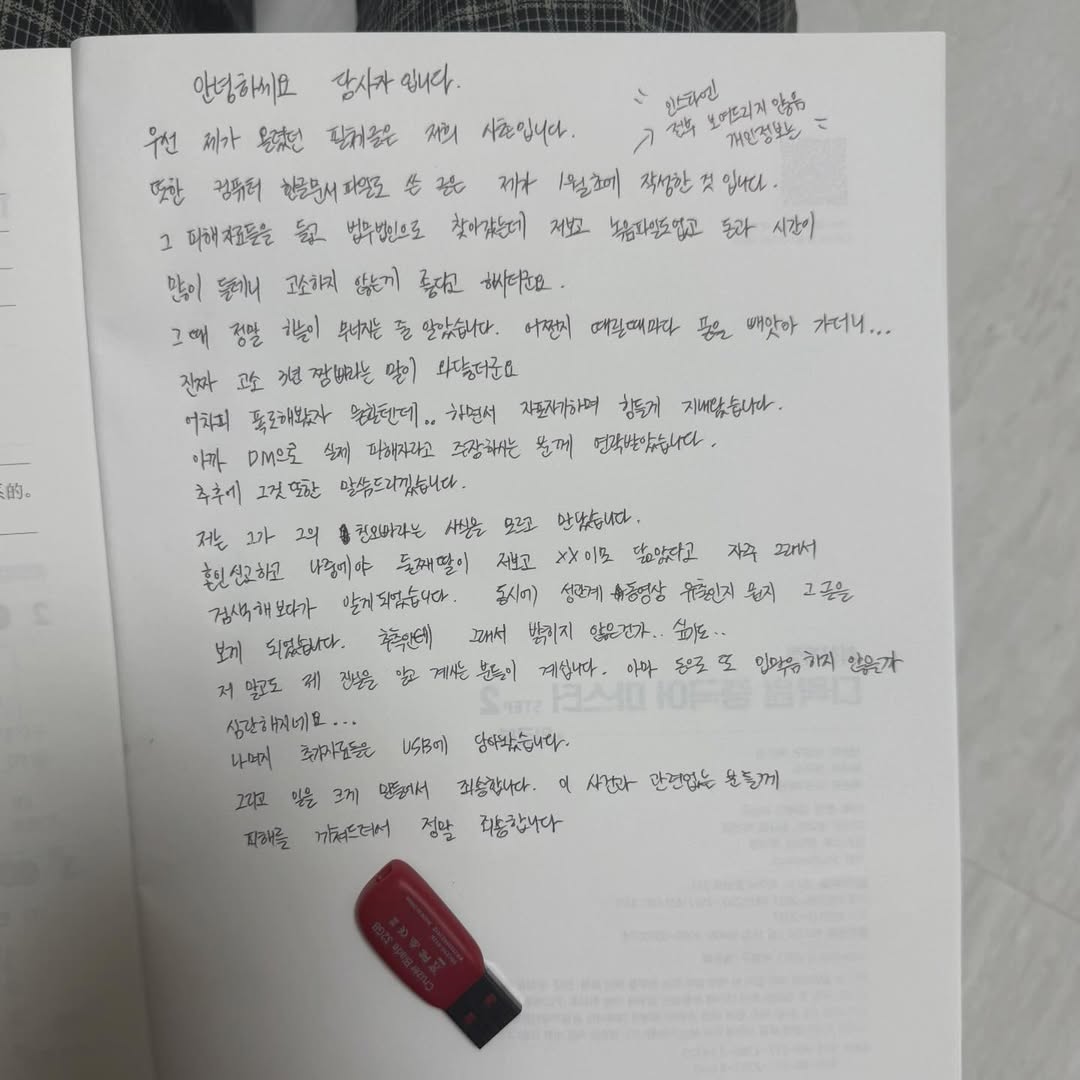 안녕하세요 당사자입니다.
인스타엔
전혀 보여드리지 않음
개인정보는
우선 제가 올렸던 필체글은 저희 사촌입니다.
또한 컴퓨터 한글문서파일로 쓴 글은 제가 1월초에 작성한 것 입니다.
그 피해자료들을 들고 법무법인으로 찾아갔는데 저보고 녹음파일도없고 돈과 시간이
많이 들테니 고소하지 않는게 좋다고 하시더군요.
그때 정말 하늘이 무너지는 줄 알았습니다. 어쩐지 때릴때마다 폰을 빼앗아 가더니...
진짜 고소 3년 짬빠라는 말이 와닿더군요
어차피 폭로해봤자 못할텐데.. 하면서 자포자기하며 힘들게 지내왔습니다.
아까 DM으로 실제 피해자라고 주장하시는 분께 연락받았습니다.
추후에 그것 또한 말씀드리겠습니다.
저는 그가 그의 친오빠라는 사실을 모르고 만났습니다.
혼인신고하고 나중에야 둘째딸이 저보고 XX이모 닮았다고 자주 그래서
검색해보다가 알게되었습니다. 동시에 성관계 동영상 유출인지 뭔지 그 글을
보게 되었습니다. 추측인데 그래서 밝히지 않은건가.. 싶기도..
저 말고도 제 진실을 알고 계시는 분들이 계십니다. 아마 돈으로 또 입막음하지 않을까
심란해지네요...
나머지 추가자료들은 USB에 담아놨습니다.
그리고 일을 크게 만들어서 죄송합니다. 이 사건과 관련없는 분들께
피해를 끼쳐드려서 정말 죄송합니다
Cruzer Blade 32GB
系的。
다락원 중국어 마스터 STEP 2